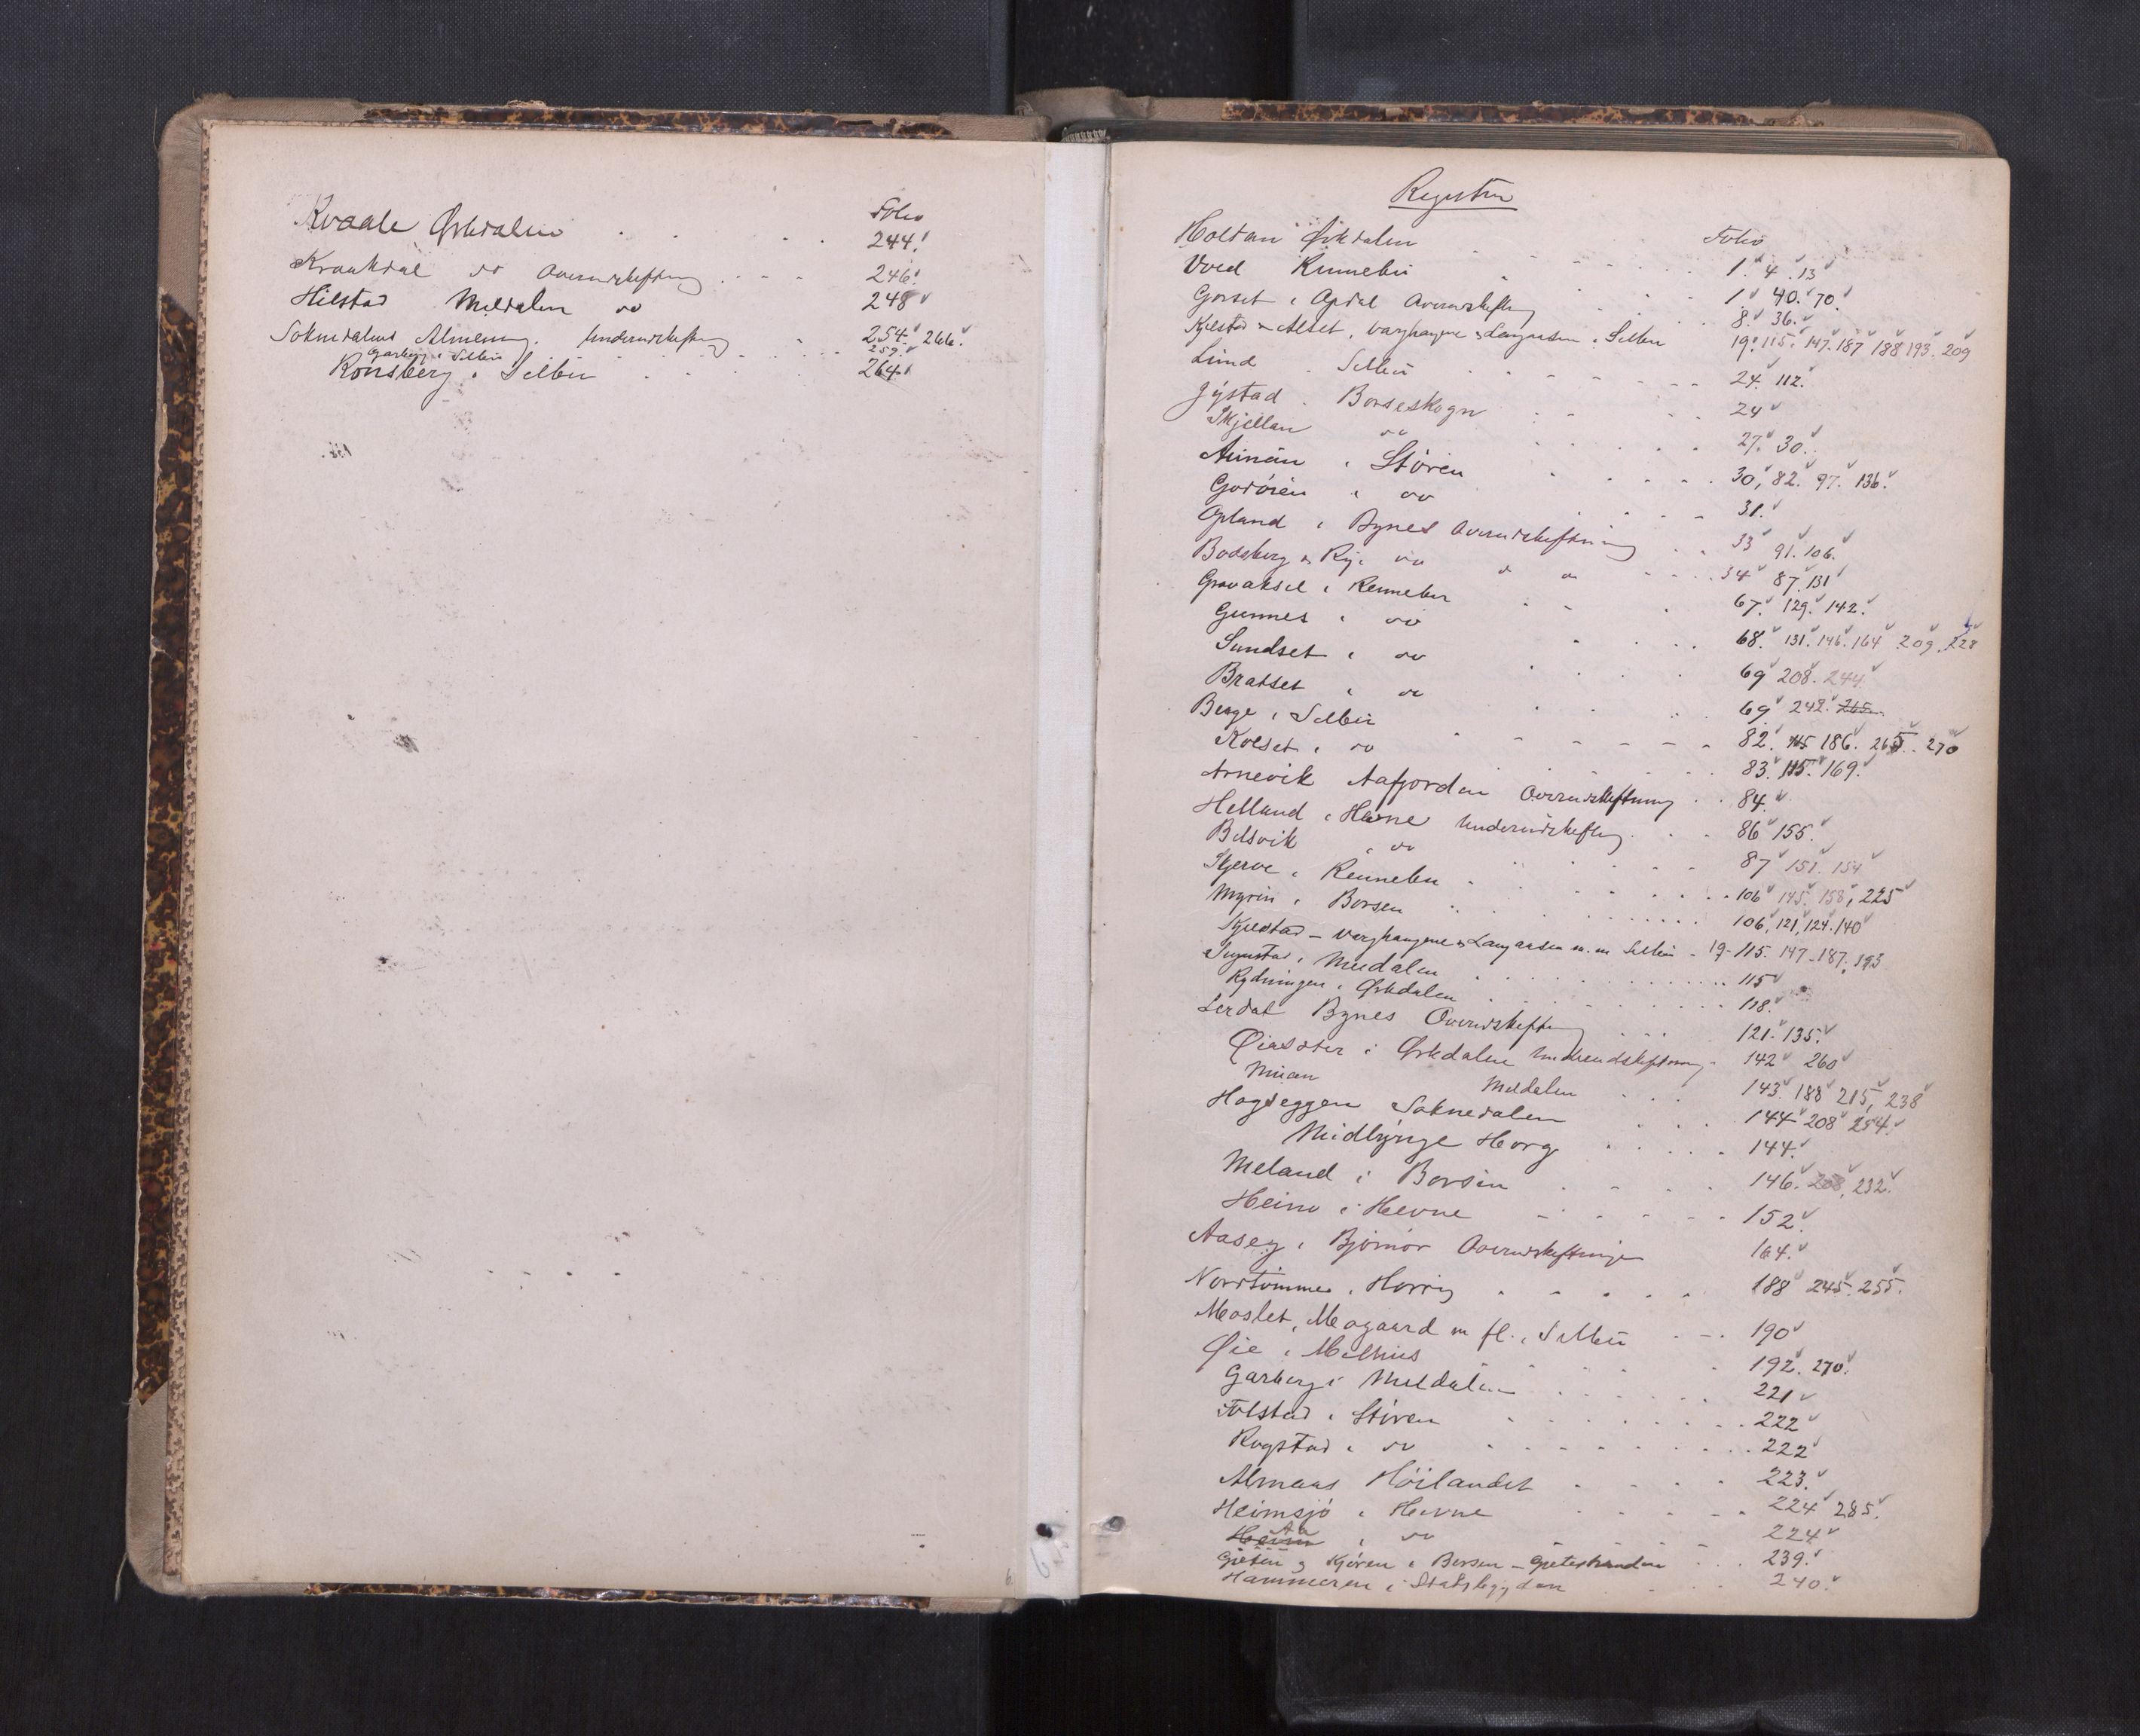 Folio
Kvaale Ørkdalen 244.
Kraakdal do Overudskiftning 246.
Hilstad Meldalen do 248
Soknedalens Almening. Underudskiftning 254. 266.
Garberg i Selbu 259.
Rønsberg i Selbu 264
Register
Holtan Ørkdalen Folio
1. 4. 13
Voed Rennebu 1 40. 70.
Gorset i Opdal Overudskiftng 8. 36.
Kjelstad Alset, Varghaugne & Langaasen i Selbu 19. 115. 147. 187 188 193. 209
Lund Selbu 24. 112.
Gystad Børseskogn 24
Skjellan do 27. 30.
Aunan i Støren 30, 82. 97. 136.
Godøien i do 31.
Opland i Bynes Overudskiftning 33 91. 106.
Bodsberg & Rye do do 34 87. 131
Gravaksel i Rennebu 67. 129. 142.
Gunnes i do 68. 131. 146. 164 209. 228
Sundset i do 69 208. 244
Bratset i do 69 242. 265
Berge i Selbu 82. 115 186. 265. 270
Kolset i do 83. 115. 169.
Arnevik Aafjorden Overudskiftning 84.
Helland i Hevne Underudskiftng. 86 155.
Belsvik i do 87 151. 154
Skjerve i Rennebu 106 145. 158, 225
Myren i Børsen 106, 121, 124. 140
Kjelstad - Varghaugene & Langaasen m. m Selbu - 19- 115. 147-187. 193
Syrstad i Meldalen 115
Rydningen i Ørkdalen 118.
Lerdal Bynes Overudskiftng 121. 135.
i Ørkdalen Underudskiftning 142 260
Muan Meldalen 143. 188 215, 238
Hagseggen Soknedalen 144 208 254.
Midlynge Horg 144.
Meland i Børsen 146. 208, 232.
Heim i Hevne 152.
Aaseg i Bjørnør Overudskiftninge 164.
Nordtømme i Horrig 188 245. 255.
Moslet, Mogaard m fl. i Selbu 190
Øie i Melhus 192. 270.
Garberg i Meldalen 221
Folstad i Støren 222
Rogstad i do 222
Almaas Høilandet 223.
Heimsjø i Hevne 224 285.
Heim Aa i do 224
Gjeten & Kjøren i Børsen - Gjetestranden 239.
Hammeren i Stadsbygden 240.